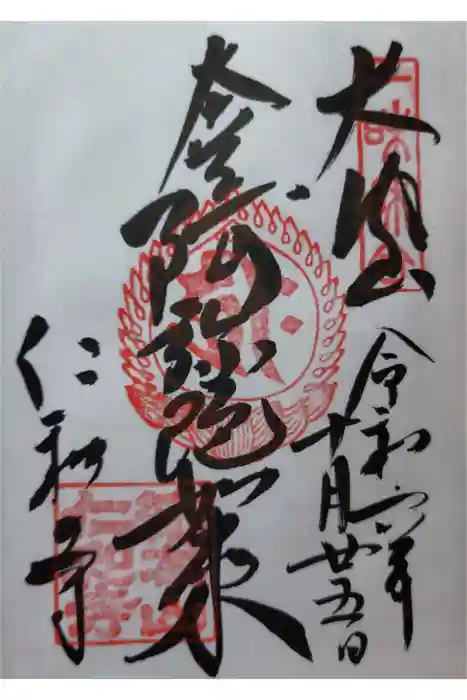 大内山
令和六年
十月廿五日
本尊阿弥陀如来
仁和寺